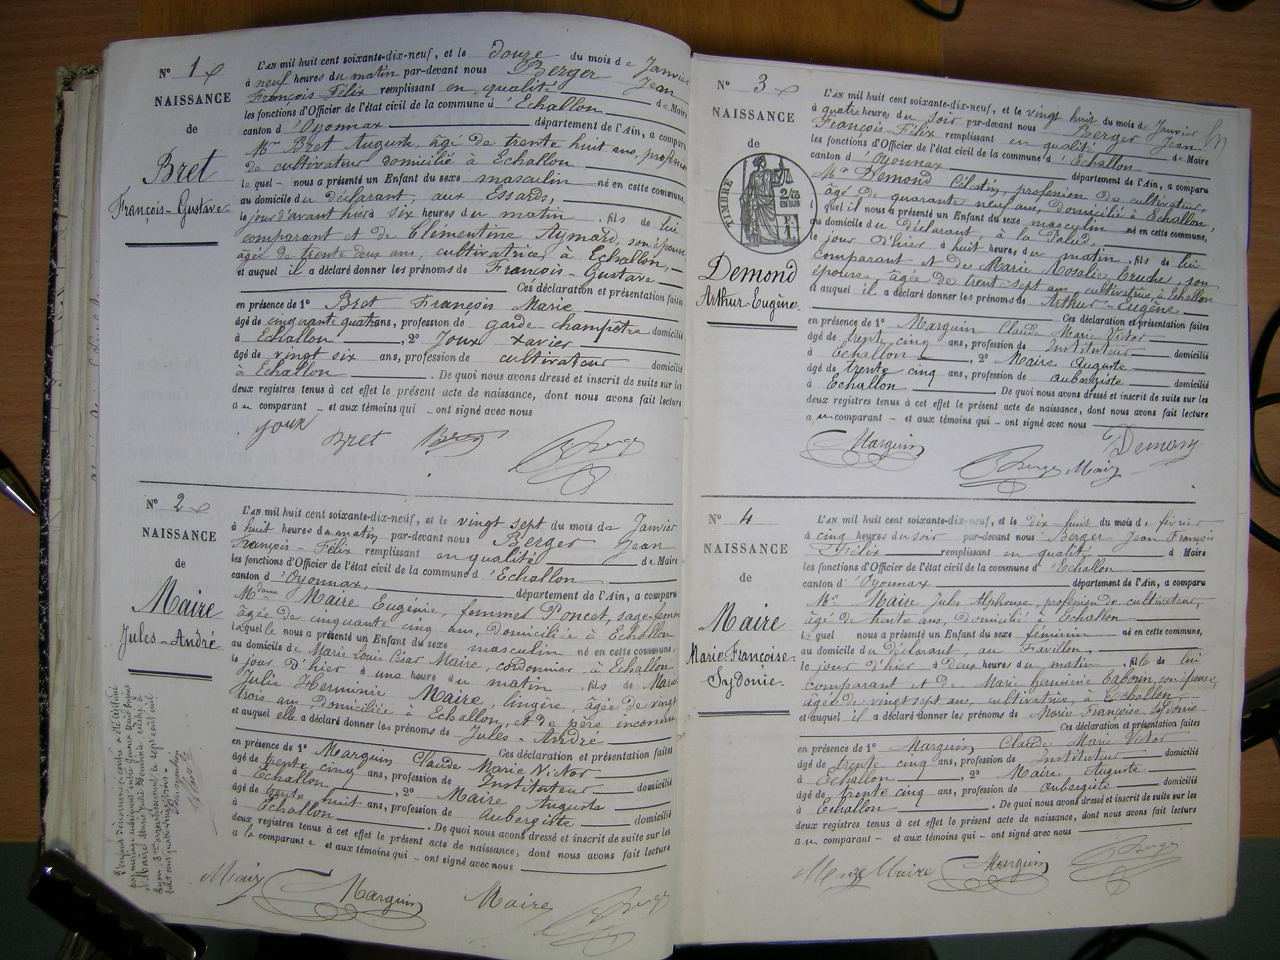 N° 1
NAISSANCE
de
Bret
François-Gustave
L'AN mil huit cent soixante-dix-neuf, et le douze du mois de Janvier
à neuf heures du matin par-devant nous Berger Jean
François Félix remplissant en qualité de Maire
les fonctions d'Officier de l'état civil de la commune d'Echallon
canton d'Oyonnax département de l'Ain, a comparu
Mr Bret Auguste, âgé de trente huit ans, profession
de cultivateur domicilié à Echallon
lequel nous a présenté un Enfant du sexe masculin né en cette commune,
au domicile du déclarant, aux Essards,
le jour d'avant hier à six heures du matin, fils de lui
comparant et de Clémentine Aymard, son épouse
âgée de trente deux ans, cultivatrice, à Echallon,
et auquel il a déclaré donner les prénoms de François-Gustave
Ces déclaration et présentation faites
en présence de 1° Bret François Marie
âgé de cinquante quatre ans, profession de garde champêtre domicilié
à Echallon, 2° Joux Xavier
âgé de vingt six ans, profession de cultivateur domicilié
à Echallon. De quoi nous avons dressé et inscrit de suite sur les
deux registres tenus à cet effet le présent acte de naissance, dont nous avons fait lecture
au comparant et aux témoins qui ont signé avec nous
Joux Bret
N° 2
NAISSANCE
de
Maire
Jules-André
L'AN mil huit cent soixante-dix-neuf, et le vingt sept du mois de Janvier
à huit heures du matin par-devant nous Berger Jean
François-Félix remplissant en qualité de Maire
les fonctions d'Officier de l'état civil de la commune d'Echallon
canton d'Oyonnax, département de l'Ain, a comparu
Mdame Maire Eugénie, femme Poncet, sage-femme
âgée de cinquante cinq ans, domiciliée à Echallon
laquelle nous a présenté un Enfant du sexe masculin né en cette commune,
au domicile de Marie Louis César Maire, cordonnier à Echallon
le jour d'hier à une heure du matin, fils de Marie
Julie Herminie Maire, lingère, âgée de vingt
trois ans, domiciliée à Echallon, et de père inconnu
et auquel elle a déclaré donner les prénoms de Jules-André
Ces déclaration et présentation faites
en présence de 1° Marguin Claude Marie Victor
âgé de trente cinq ans, profession de Instituteur domicilié
à Echallon, 2° Maire Auguste
âgé de trente huit ans, profession de Aubergiste domicilié
à Echallon. De quoi nous avons dressé et inscrit de suite sur les
deux registres tenus à cet effet le présent acte de naissance, dont nous avons fait lecture
à la comparante et aux témoins qui ont signé avec nous
Marguin Maire
N° 3
NAISSANCE
de
TIMBRE
Demond
Arthur-Eugène
L'AN mil huit cent soixante-dix-neuf, et le vingt huit du mois de Janvier
à quatre heures du soir par-devant nous Berger Jean
François Félix remplissant en qualité de Maire
les fonctions d'Officier de l'état civil de la commune d'Echallon
canton d'Oyonnax département de l'Ain, a comparu
Mr Demond Célestin, profession de cultivateur,
âgé de quarante neuf ans, domicilié à Echallon,
lequel il nous a présenté un Enfant du sexe masculin né en cette commune,
au domicile du déclarant à la
le jour d'hier à huit heures du matin, fils de lui
comparant et de Marie Rosalie son
épouse, âgée de trente sept ans, cultivatrice à Echallon
et auquel il a déclaré donner les prénoms de Arthur-Eugène
Ces déclaration et présentation faites
en présence de 1° Marguin Claude Marie Victor
âgé de trente cinq ans, profession de Instituteur domicilié
à Echallon, 2° Maire Auguste
âgé de trente cinq ans, profession de aubergiste domicilié
à Echallon. De quoi nous avons dressé et inscrit de suite sur les
deux registres tenus à cet effet le présent acte de naissance, dont nous avons fait lecture
au comparant et aux témoins qui ont signé avec nous
Marguin Demond
N° 4
NAISSANCE
de
Maire
Marie-Françoise-
Sydonie
L'AN mil huit cent soixante-dix-neuf, et le dix huit du mois de février
à cinq heures du soir par-devant nous Berger Jean François
Félix remplissant en qualité de Maire
les fonctions d'Officier de l'état civil de la commune d'Echallon
canton d'Oyonnax département de l'Ain, a comparu
Mr Maire Jules Alphonse, profession de cultivateur,
âgé de trente ans, domicilié à Echallon
lequel nous a présenté un Enfant du sexe féminin né en cette commune,
au domicile du déclarant, au
le jour d'hier à deux heures du matin, fille de lui
comparant et de Marie son épouse,
âgée de vingt sept ans, cultivatrice, à Echallon
et auquel il a déclaré donner les prénoms de Marie Françoise Sydonie
Ces déclaration et présentation faites
en présence de 1° Marguin Claude Marie Victor
âgé de trente cinq ans, profession de Instituteur domicilié
à Echallon, 2° Maire Auguste
âgé de trente cinq ans, profession de aubergiste domicilié
à Echallon. De quoi nous avons dressé et inscrit de suite sur les
deux registres tenus à cet effet le présent acte de naissance, dont nous avons fait lecture
au comparant et aux témoins qui ont signé avec nous
Maire Marguin